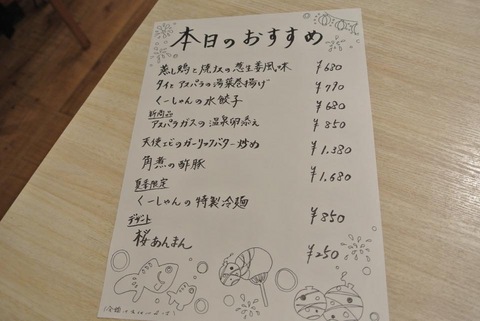 本日のおすすめ
蒸し鶏と焼茄の葱生姜風味 ¥680
タイとアスパラの湯葉巻揚げ ¥780
くーしゃんの水餃子 ¥680
新商品
アスパラガスの温泉卵添え ¥850
天使エビのガーリックバター炒め ¥1,380
角煮の酢豚 ¥1,680
夏季限定
くーしゃんの特製冷麺 ¥850
デザート
桜あんまん ¥250